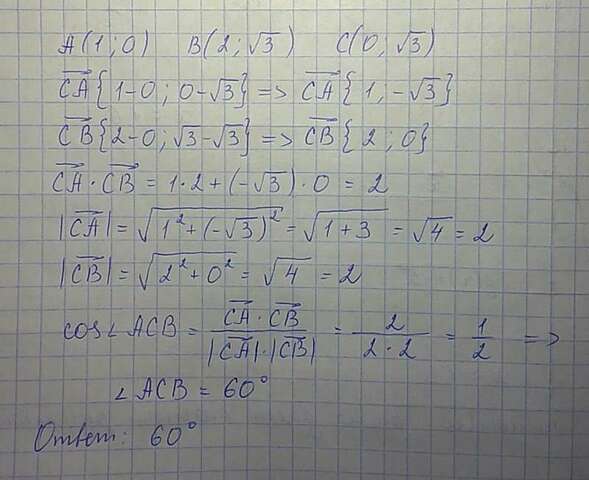 A(1;0) B(2;√3) C(0;√3)
CA{1-0; 0-√3} => CA{1;-√3}
CB{2-0; √3-√3} => CB{2;0}
CA·CB = 1·2+(-√3)·0 = 2
|CA| = √(1²+(-√3)²) = √(1+3) = √4 = 2
|CB| = √(2²+0²) = √4 = 2
cos∠ACB = (CA·CB)/(|CA|·|CB|) = 2/(2·2) = 1/2 =>
∠ACB = 60°
Ответ: 60°